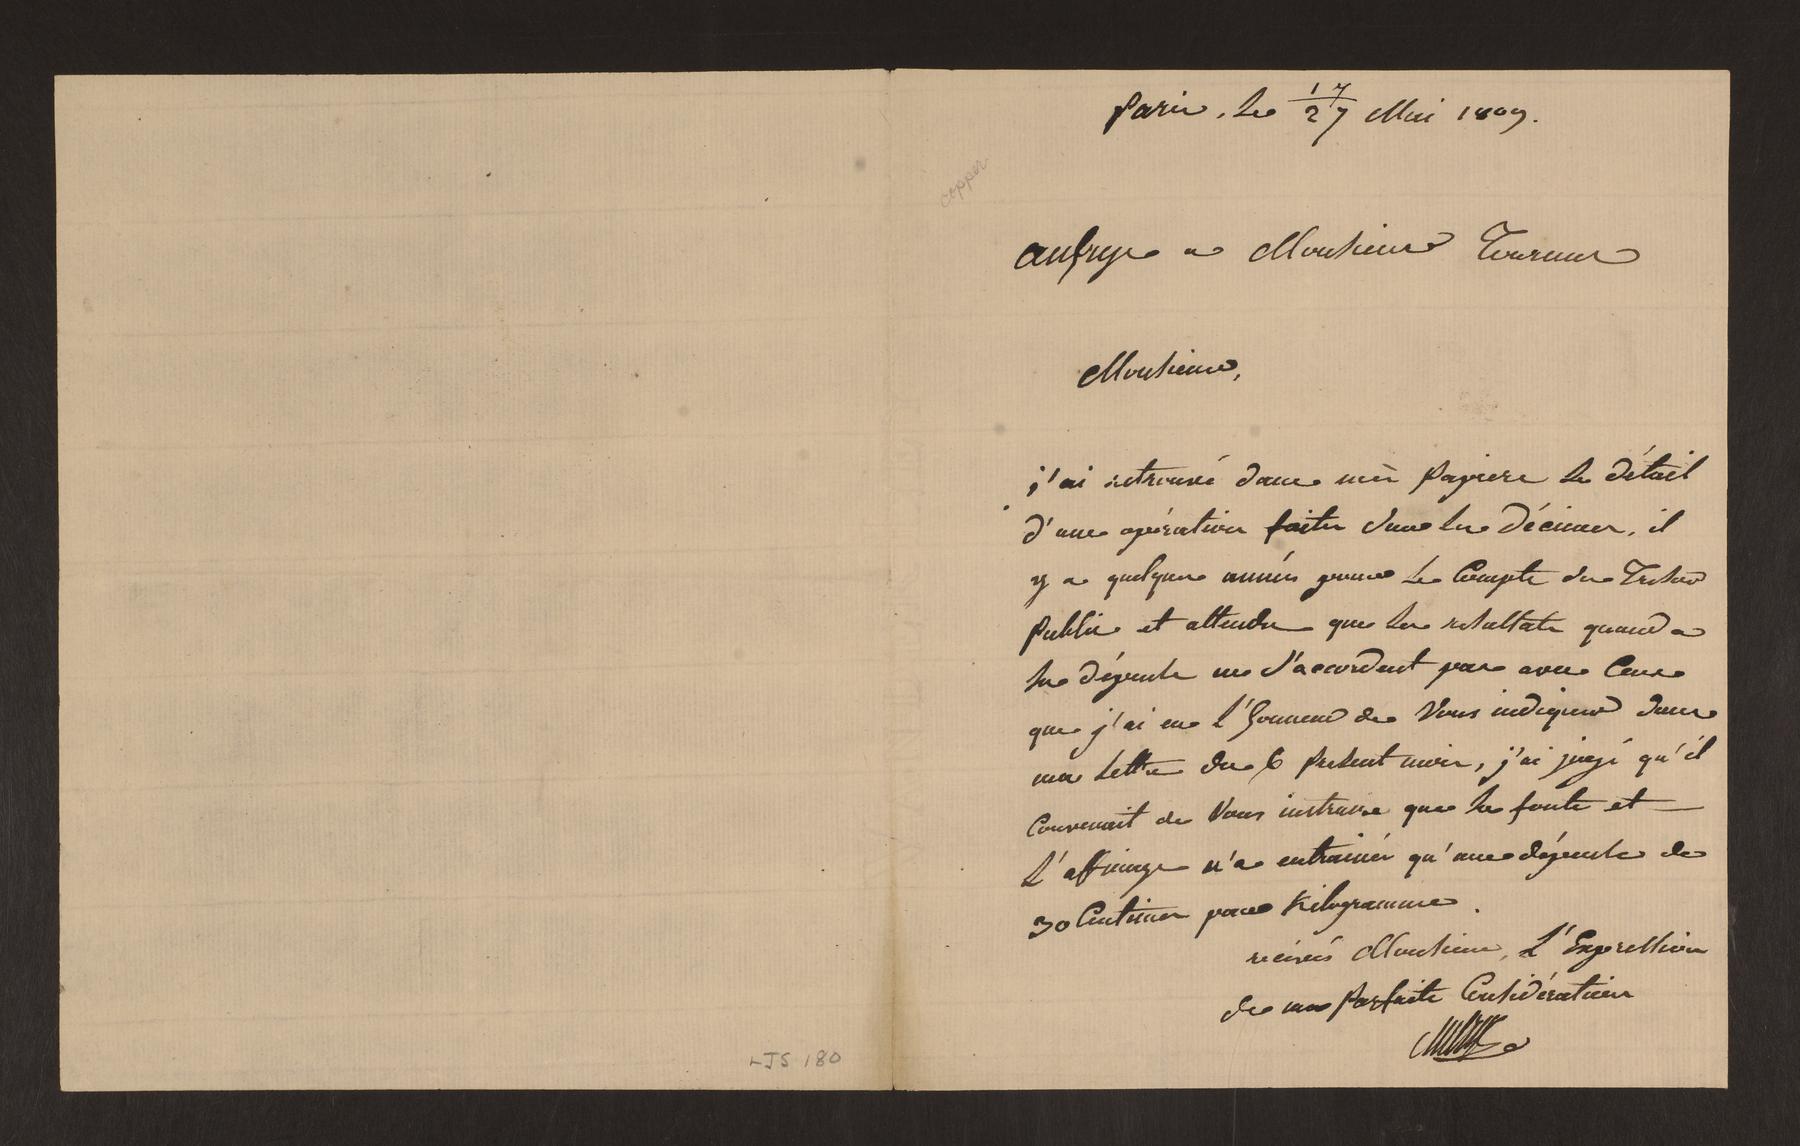 Paris, Le 17/27 Mai 1809.
copper
Anfrye a Monsieur Tourneur
Monsieur,
j'ai retrouvé dans mes papiers le détail
d'une opération faite sur les décimes, il
y a quelques années pour le Compte du Tresor
Public et attendu que les resultats quand a
la dépense ne s'accordent pas avec Ceux
que j'ai eu l'honneur de Vous indiquer dans
ma Lettre du 6 présent mois, j'ai jugé qu'il
Convenait de Vous instruire que la fonte et
L'affinage n'a entrainés qu'une dépense de
30 Centimes pour Kilogramme.
recevés Monsieur, L'Expression
de ma Parfaite Considération
LJS 180